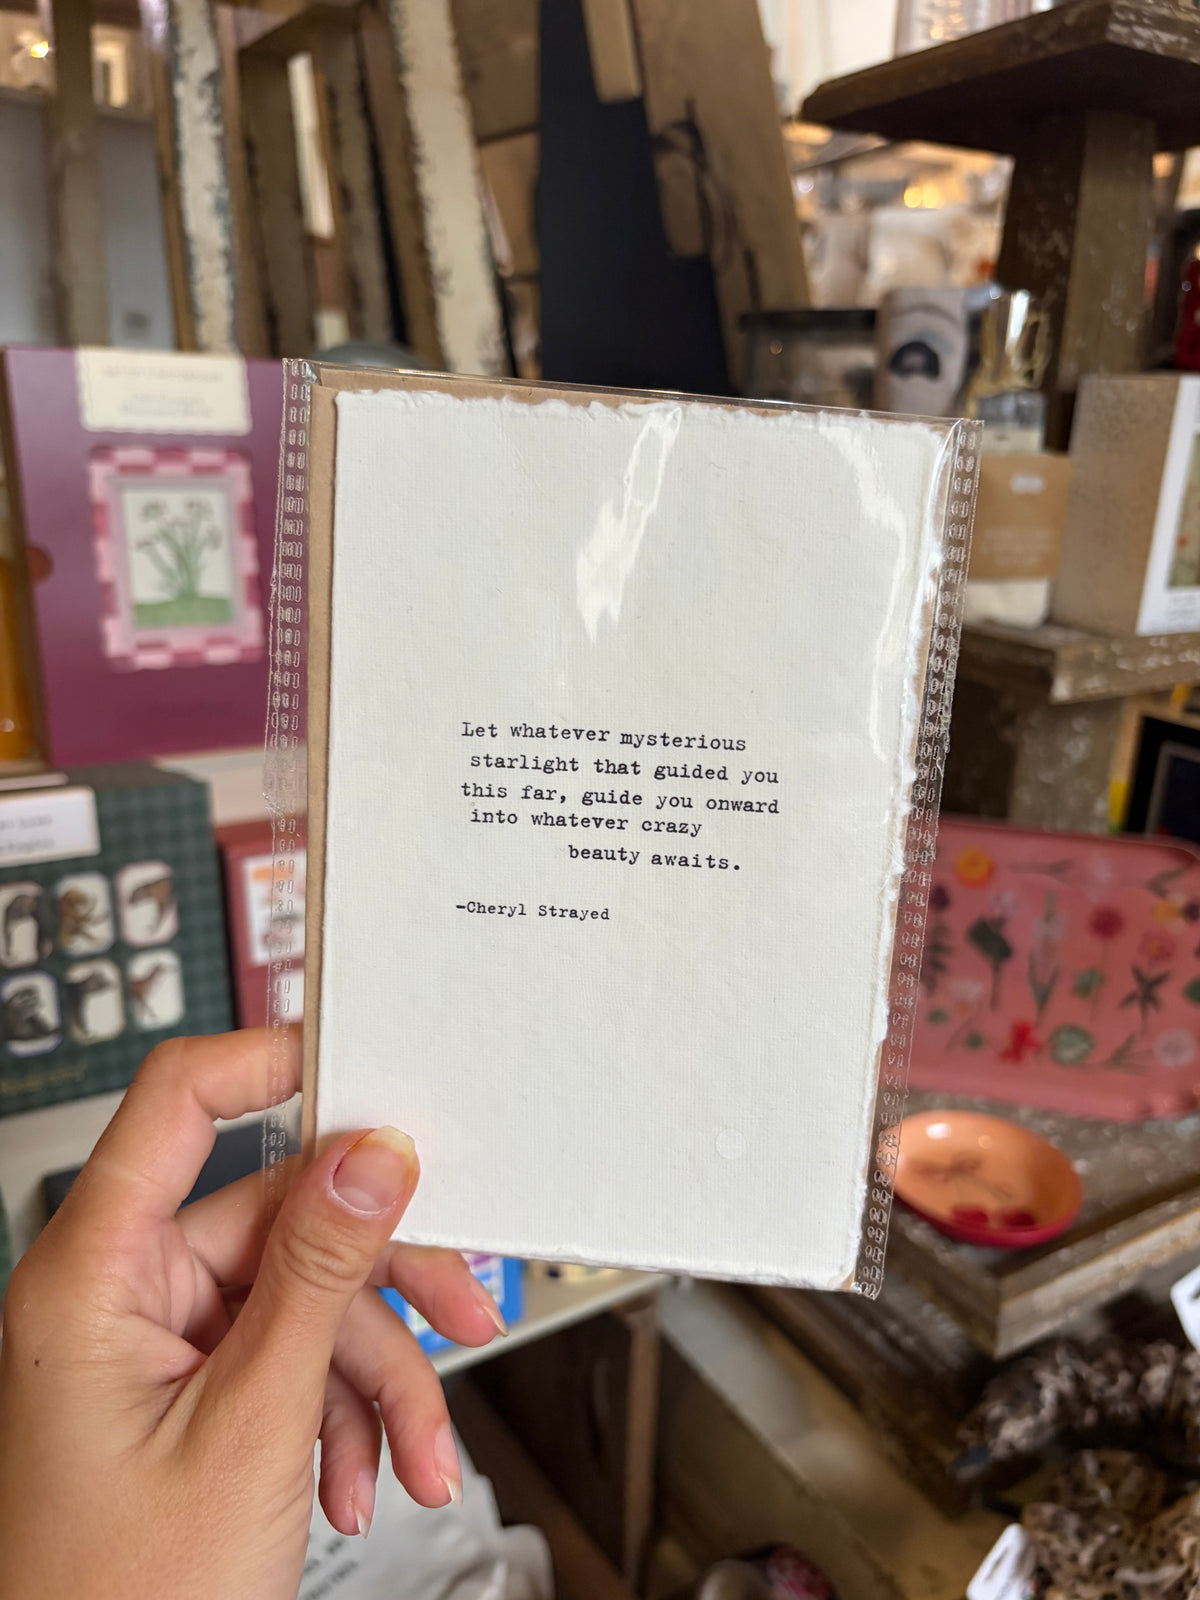 Let whatever mysterious
starlight that guided you
this far, guide you onward
into whatever crazy
beauty awaits.
-Cheryl Strayed